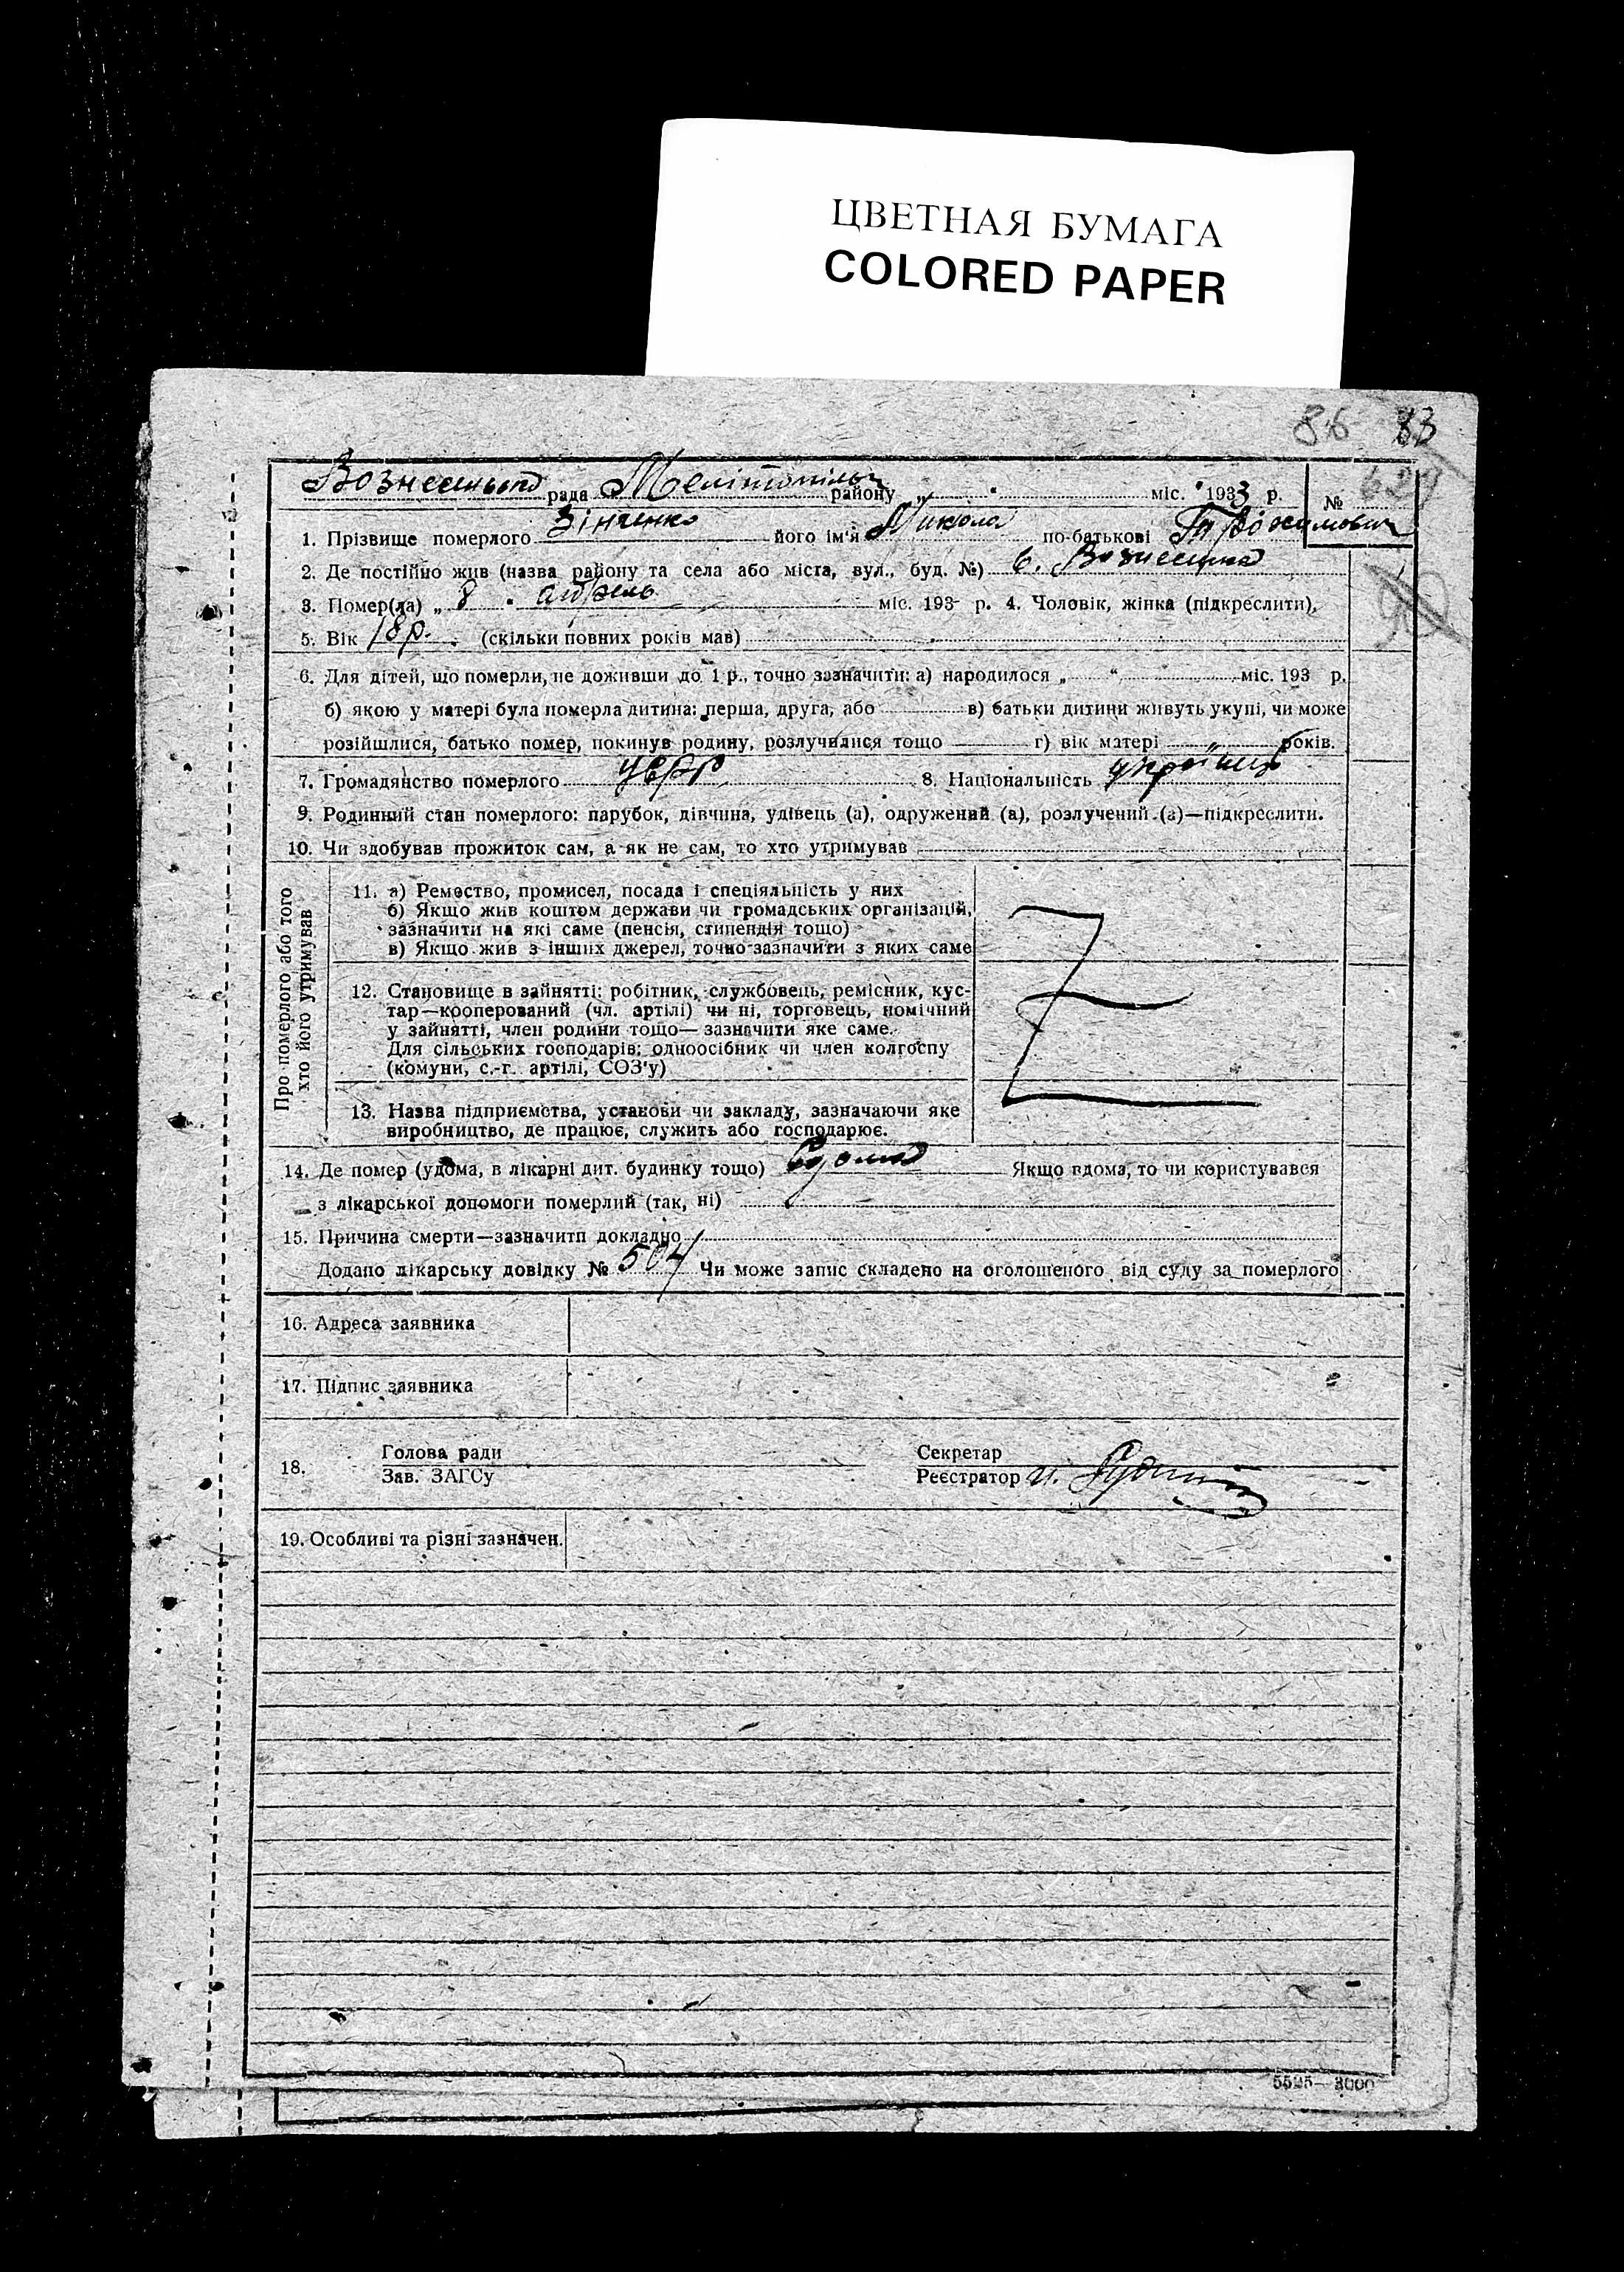 ЦВЕТНАЯ БУМАГА
COLORED PAPER
86 83
рада Мелітопільс району „ “ міс. 1933 р. № 629
1. Прізвище померлого Зінченко його ім'я Микола по-батькові
2. Де постійно жив (назва району та села або міста, вул., буд. №) с. Вознесенка
3. Помер(ла) „ 8 “ апрель міс. 193 р. 4. Чоловік, жінка (підкреслити).
5. Вік 18 р. (скільки повних років мав)
6. Для дітей, що померли, не доживши до 1 р., точно зазначити: а) народилося „ “ міс. 193 р.
б) якою у матері була померла дитина: перша, друга, або в) батьки дитини живуть укупі, чи може
розійшлися, батько помер, покинув родину, розлучилися тощо г) вік матері „ років.
7. Громадянство померлого УСРР 8. Національність українець
9. Родинний стан померлого: парубок, дівчина, удівець (а), одружений (а), розлучений (а)—підкреслити.
10. Чи здобував прожиток сам, а як не сам, то хто утримував
Про померлого або того
хто його утримував
11. а) Ремество, промисел, посада і спеціяльність у них
б) Якщо жив коштом держави чи громадських організацій,
зазначити на які саме (пенсія, стипендія тощо)
в) Якщо жив з інших джерел, точно зазначити з яких саме
12. Становище в зайнятті: робітник, службовець, ремісник, кус-
тар—кооперований (чл. артілі) чи ні, торговець, помічний
у зайнятті, член родини тощо— зазначити яке саме.
Для сільських господарів: одноосібник чи член колгоспу
(комуни, с.-г. артілі, СОЗ'у)
13. Назва підприємства, установи чи закладу, зазначаючи яке
виробництво, де працює, служить або господарює.
14. Де помер (удома, в лікарні дит. будинку тощо) вдома Якщо вдома, то чи користувався
з лікарської допомоги померлий (так, ні)
15. Причина смерти—зазначити докладно
Додано лікарську довідку № 504 Чи може запис складено на оголошеного від суду за померлого
16. Адреса заявника
17. Підпис заявника
18. Голова ради
Зав. ЗАГСу
Секретар
Реєстратор
19. Особливі та різні зазначен.
5525— 3000